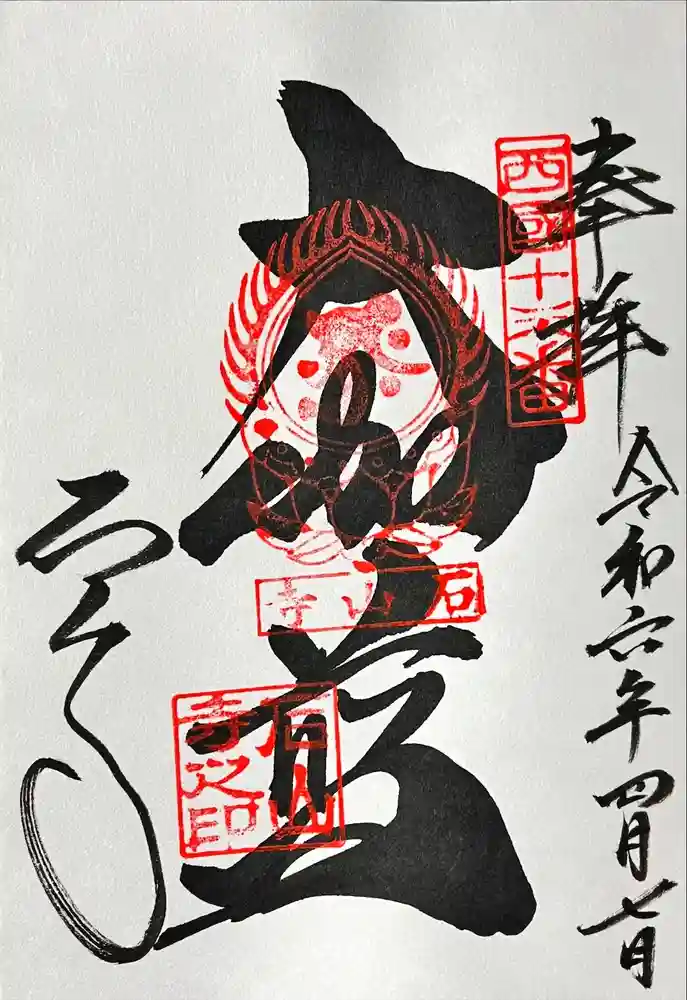 奉拝
令和六年四月七日
西國十三番
大伽藍
石山寺
石山寺之印
石山寺